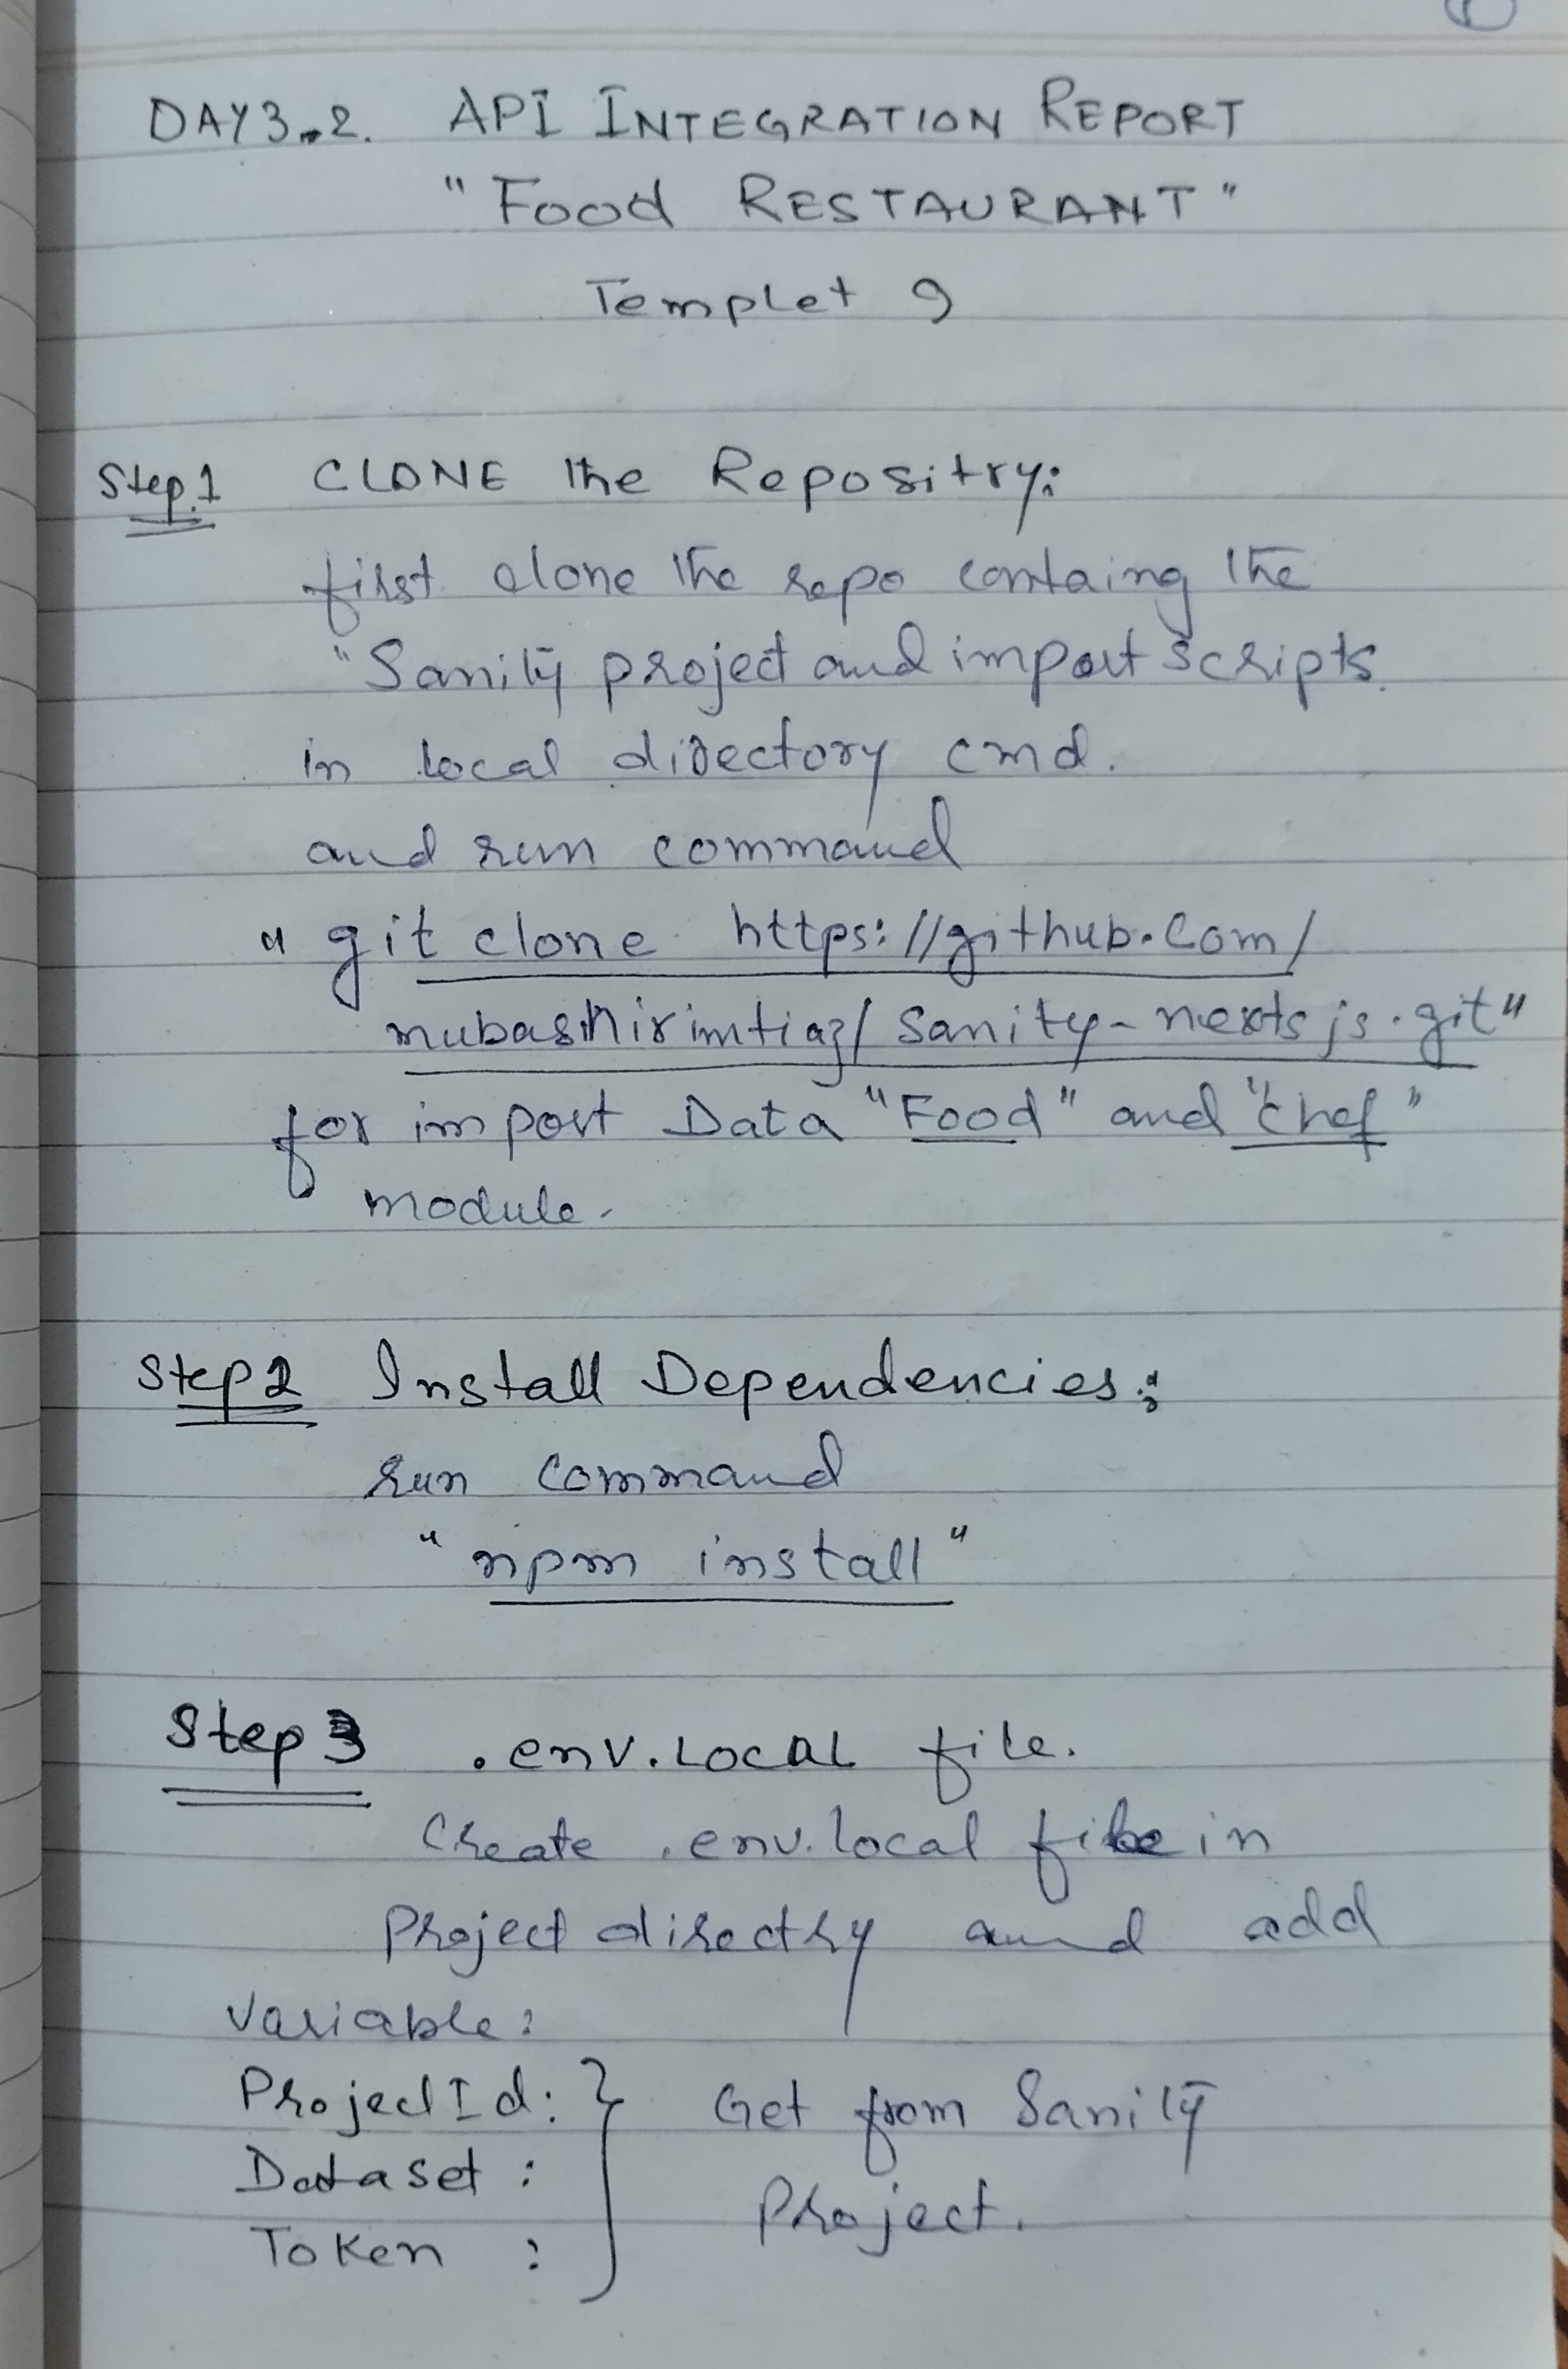 DAY 3.2. API INTEGRATION REPORT
"FOOD RESTAURANT"
Templet 9
Step.1 CLONE the Repositry:
first clone the repo containg the
"Sanity project and import scripts.
in local directory cmd.
and run command
" git clone https://github.com/
mubashirimtiaz/sanity-nextsjs.git"
for import Data "Food" and "chef"
module.
Step 2 Install Dependencies:
run command
"npm install"
Step 3 .env.LOCAL file.
Create .env.local file in
Project directry and add
variable:
ProjectId: } Get from Sanity
Dataset : Project.
Token :